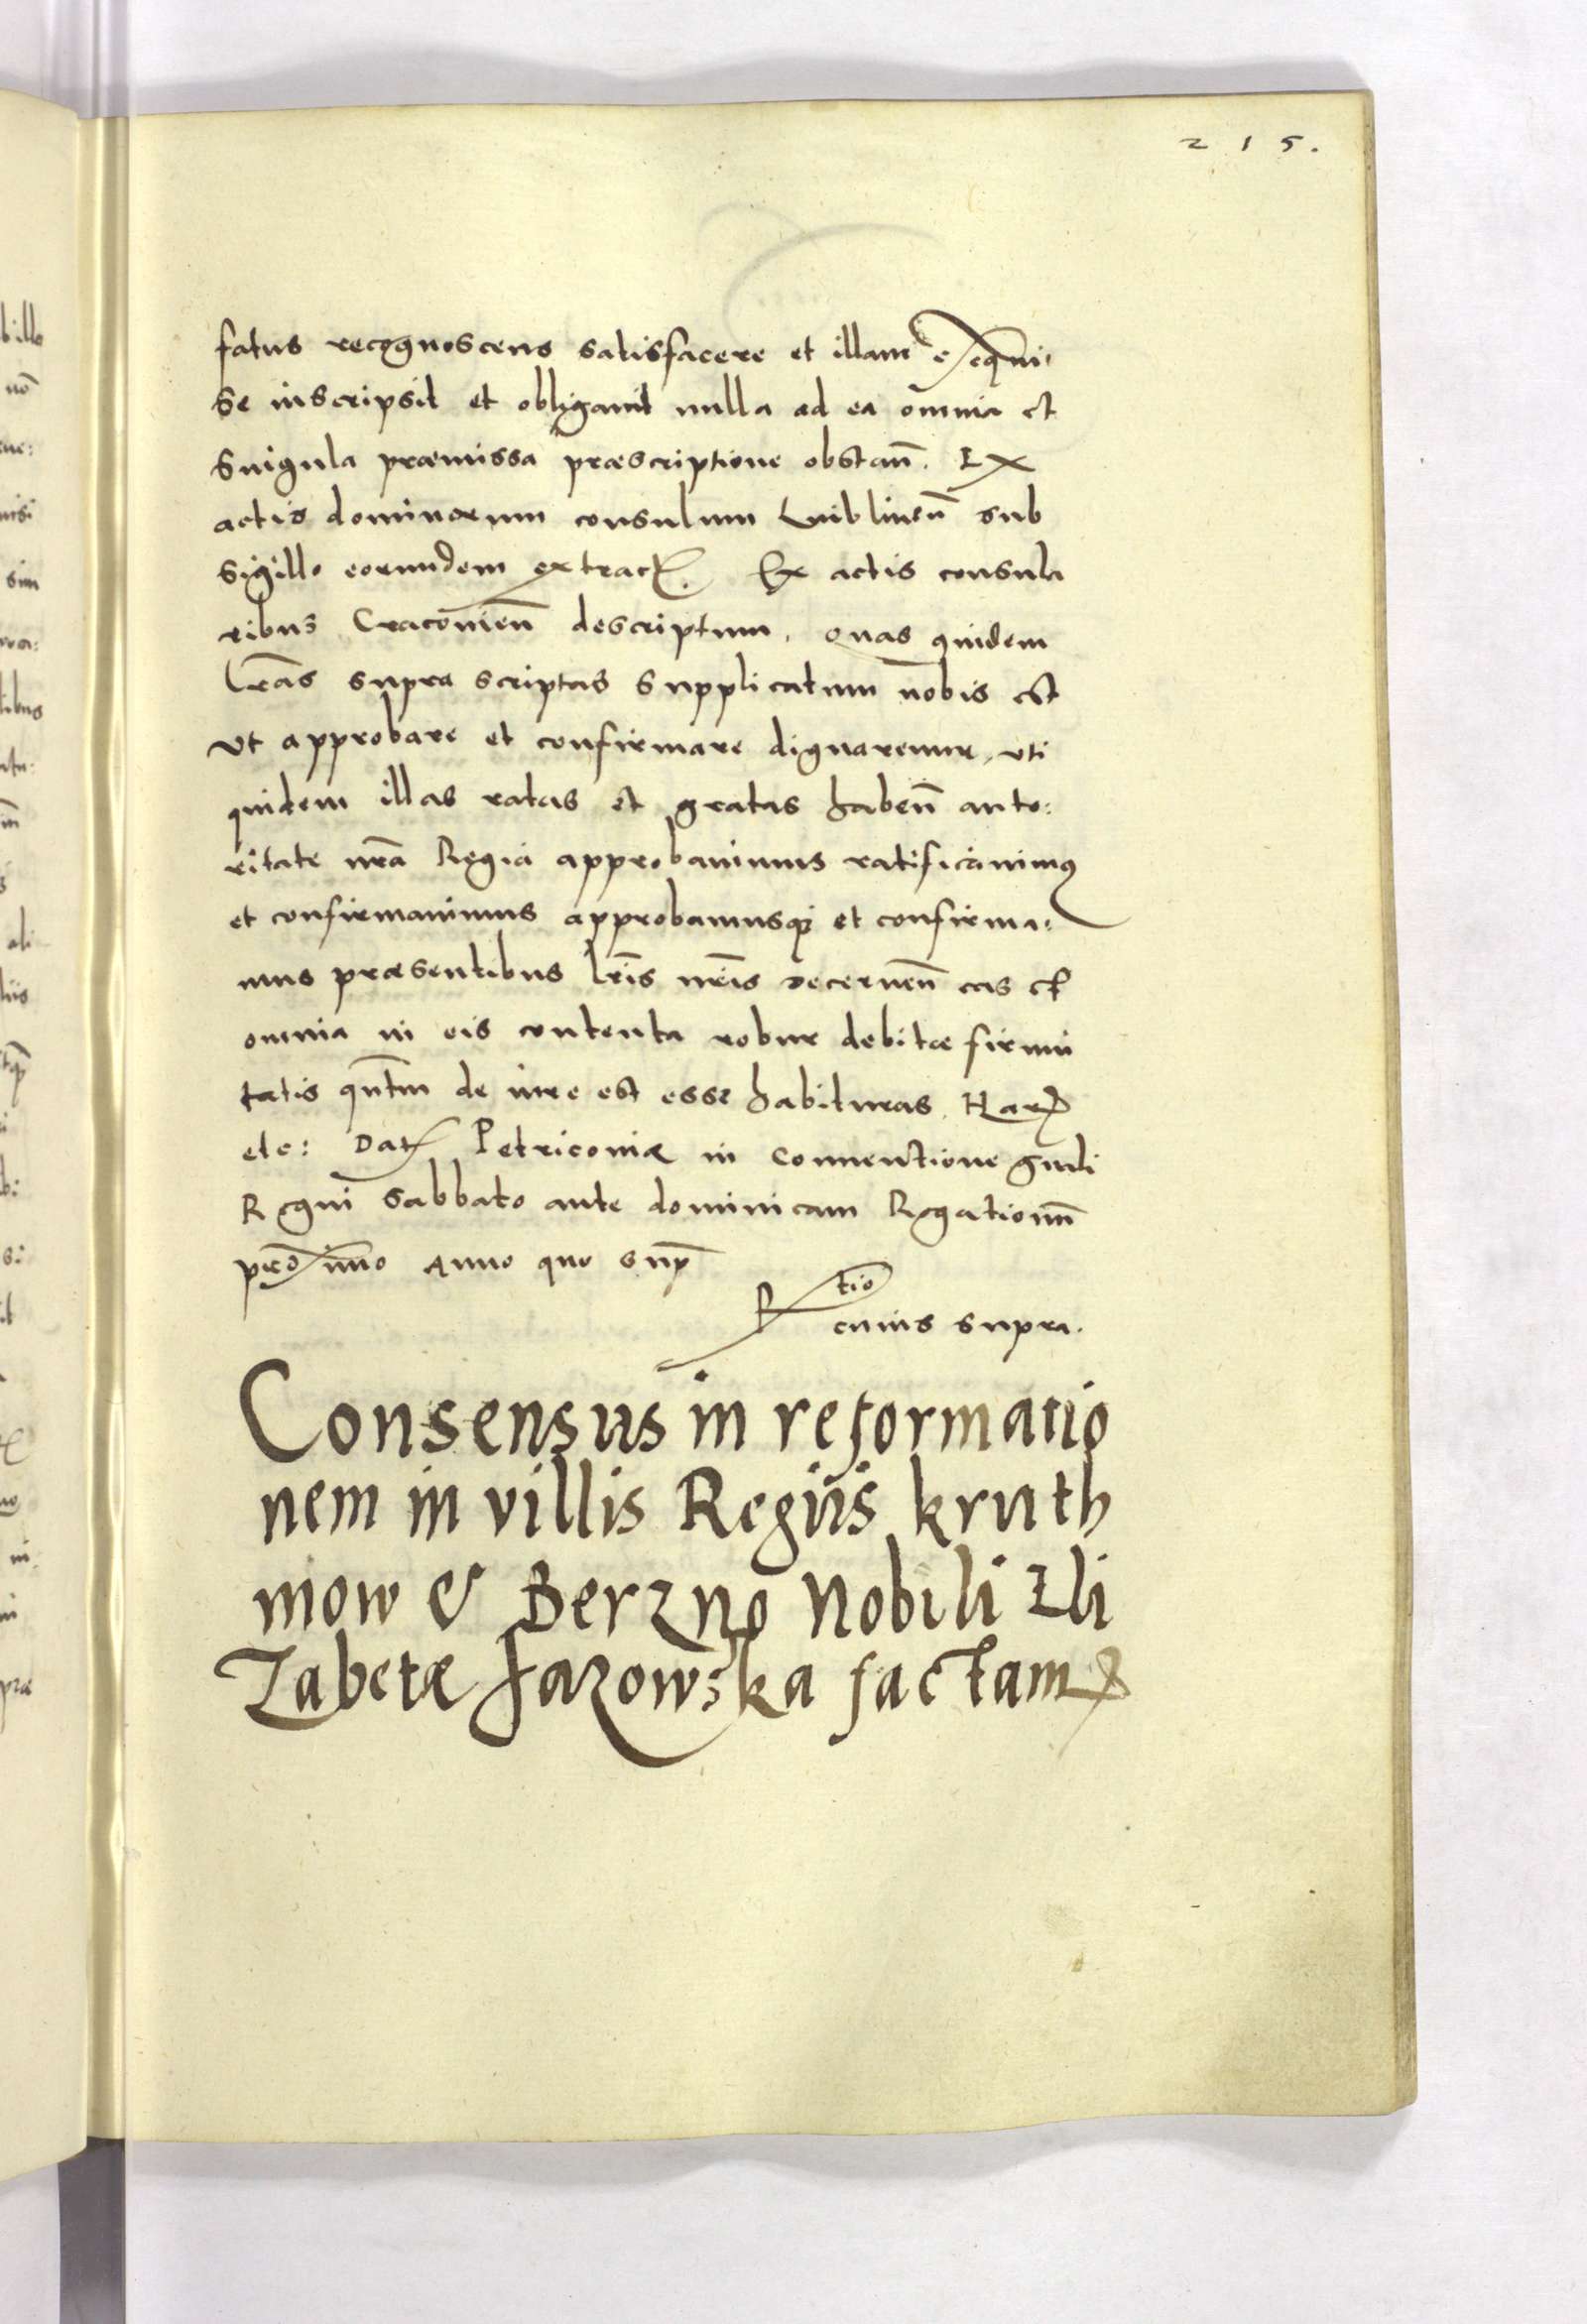 215.
fatus recognoscens satisfacere et illam exequi
se inscripsit et obligavit nulla ad ea omnia et
singula præmissa præscriptione obstañ. Ex
actis dominorum consulum Lublineñ sub
sigillo eorundem extract. Ex actis consula
ribus Cracovieñ descriptum, quas quidem
lrãs supra scriptas supplicatum nobis est
ut approbare et confirmare dignaremur, uti
quidem illas ratas et gratas habeñ auto:
ritate nrã Regia approbavimus ratificavimus
et confirmavimus approbamusq; et confirma:
mus præsentibus lrĩs nrĩs decerneñ eas et
omnia in eis contenta robur debitæ firmi
tatis qũtm de iure est esse habituras. Har
etc: Dat Petricoviæ in conventione gnãli
Regni sabbato ante dominicam Rogationũ
proximo Anno quo sup̃
Rtio
cuius supra.
Consensus in reformatio
nem in villis Regiis kruth
mow & Berzno Nobili Eli
zabetæ Jazowska factam